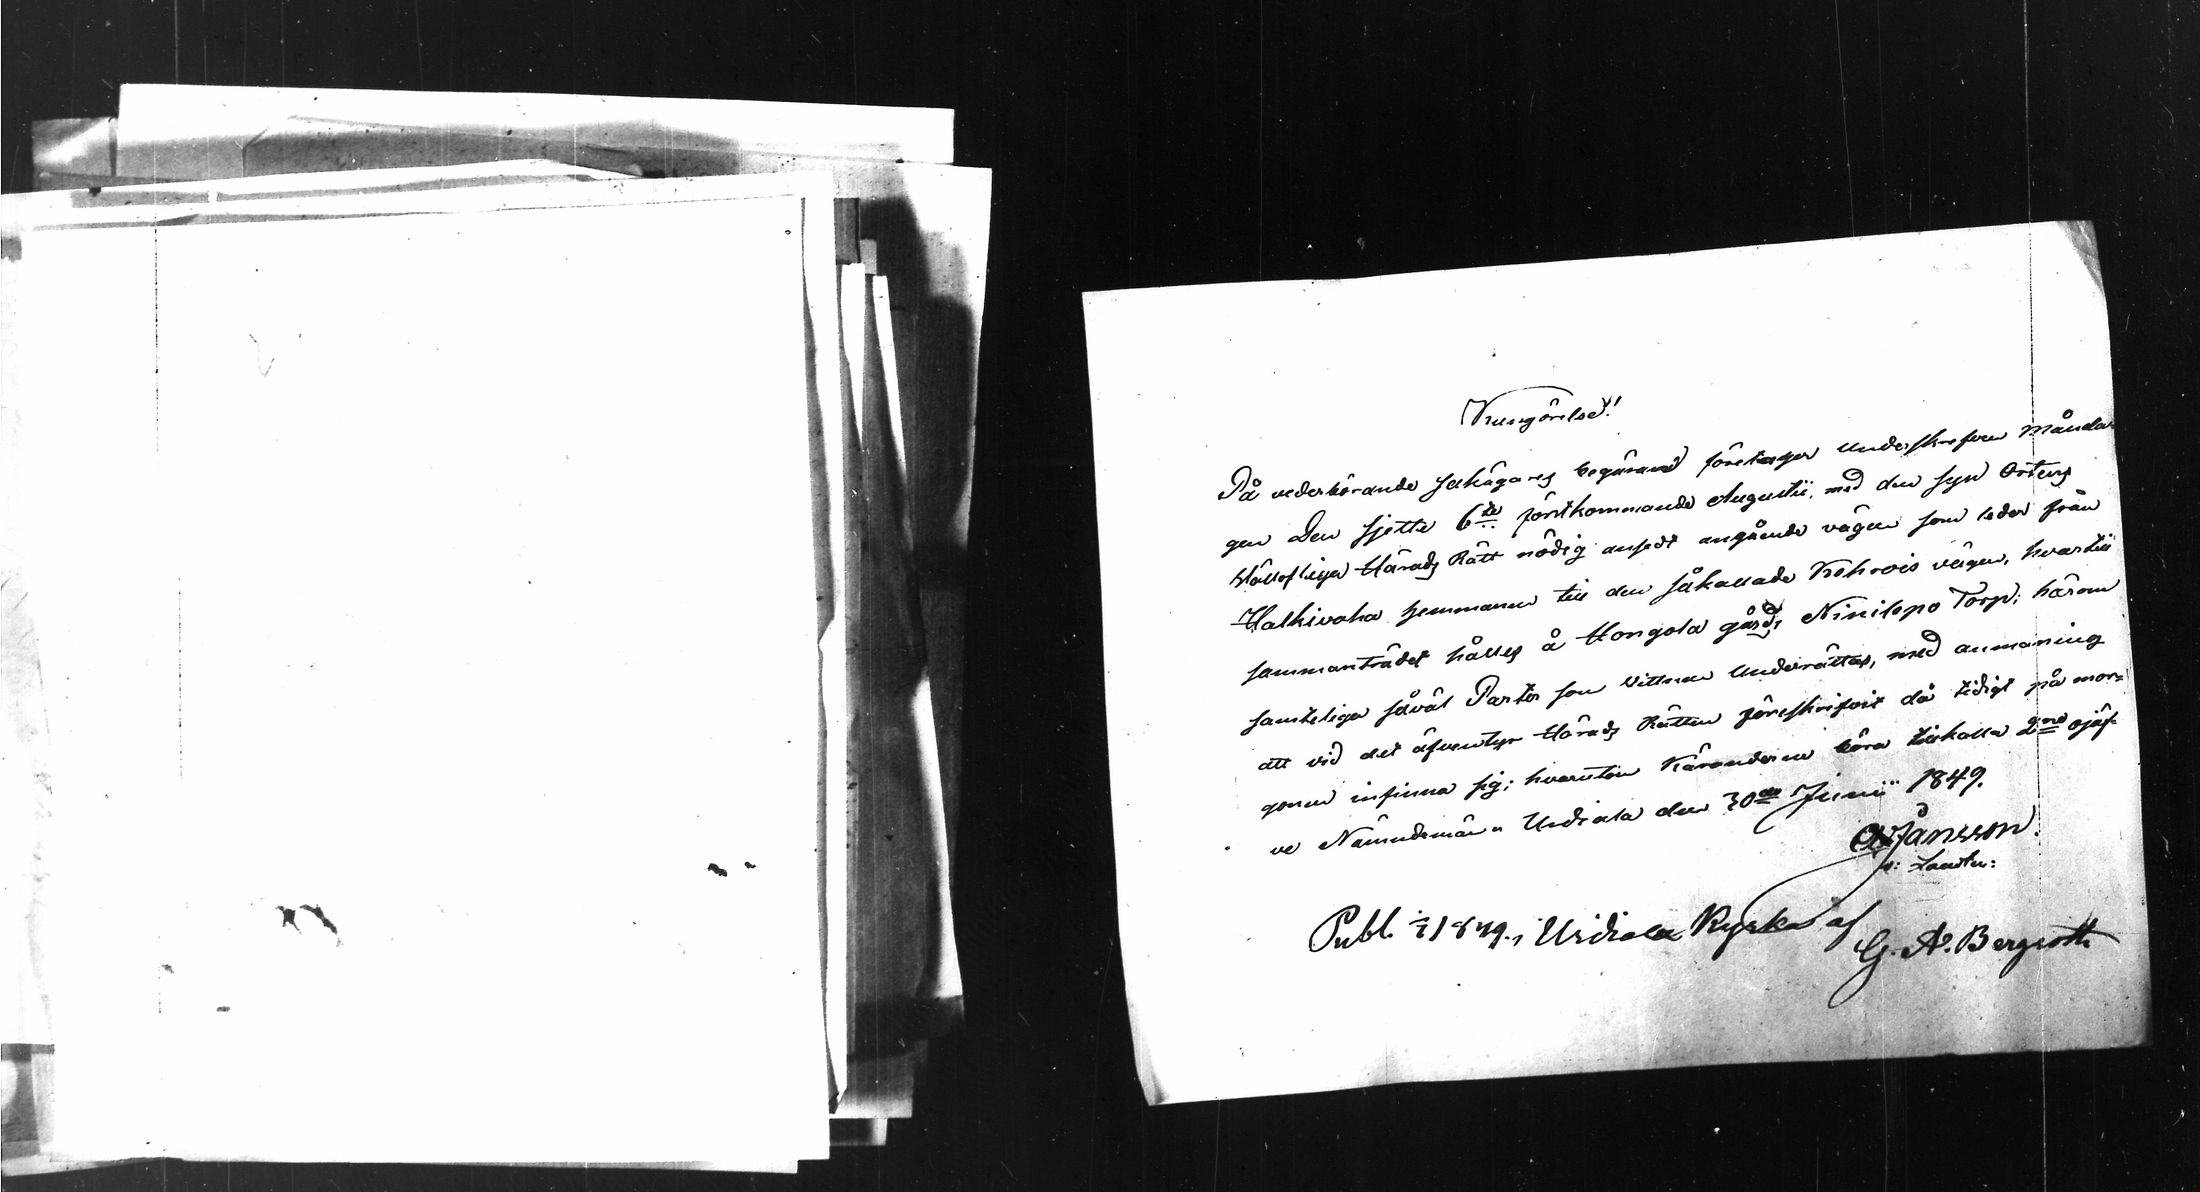 Kungörelse!
På vederbörande sakägares begäran företager underskrefven Månda-
gen den sjette 6te förstkommande Augustii, med den syn Ortens
Wällofliga Härads Rätt nödig ansedt angående vägen som leder från
Halkivaha hemmanen till den såkallade Kehrois vägen, hvartill
sammanträdet hålles å Hongola gårds Ninilepo Torp; härom
samteliga såväl Parter som Vittnen underrättas, med anmaning
att vid det äfventyr Härads Rätten föreskrifvit då tidigt på mor-
gonen infinna sig; hvarutom Käranderne böra tillkalla 2ne ojäf-
ve Nämndemän. Urdiala den 30de Junii 1849.
Jansson.
Publ. 1/7 1849, i Urdiala Kyrka af
G. A. Bergroth